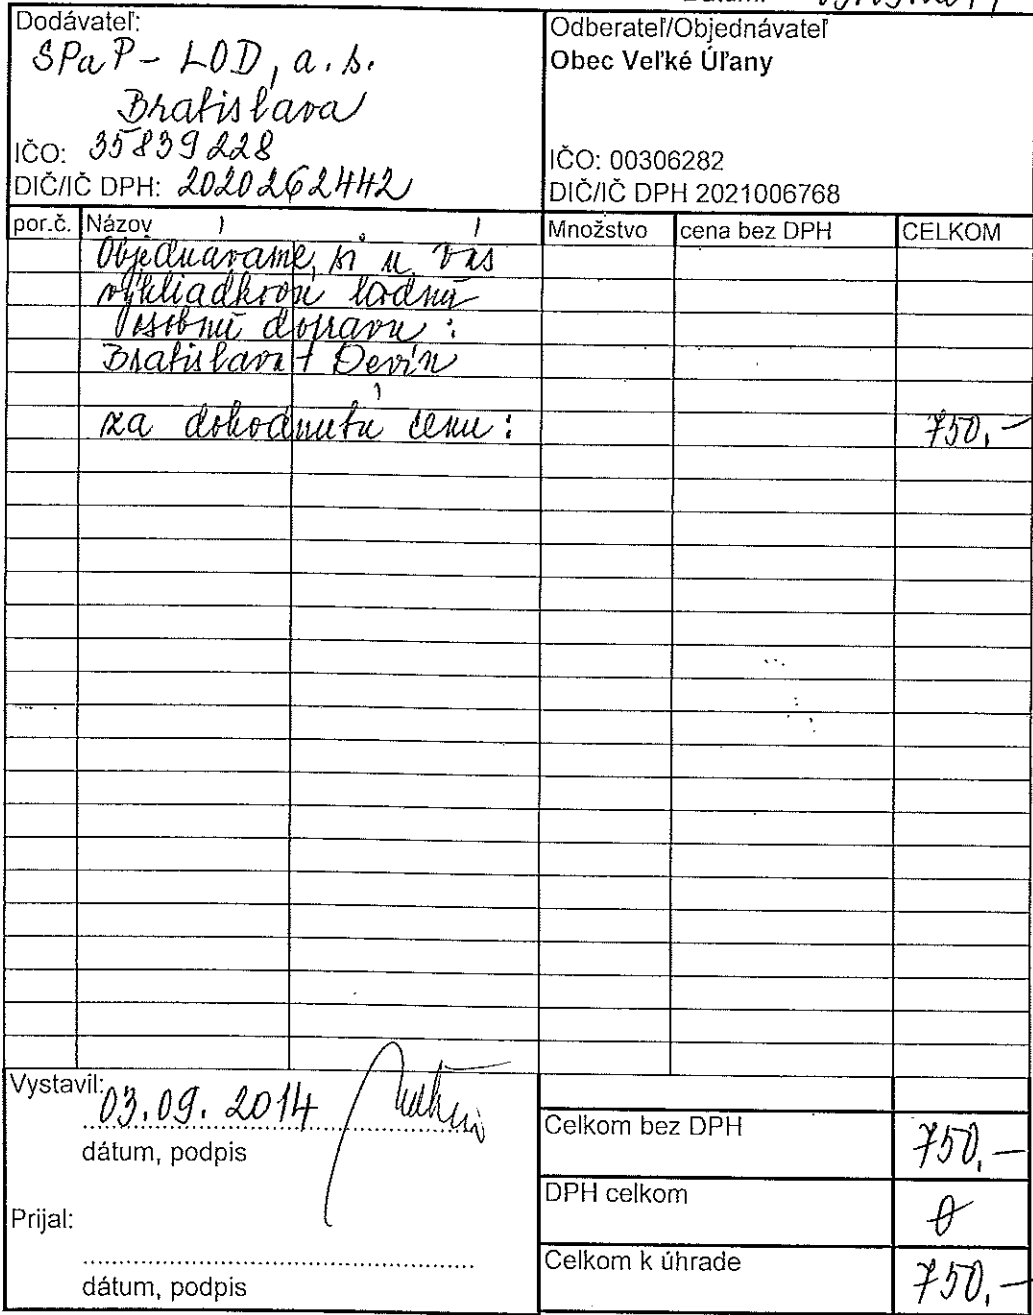 Dátum: 03.09.2014
Dodávateľ:
SPaP - LOD, a.s.
Bratislava
IČO: 35839228
DIČ/IČ DPH: 2020262442
Odberateľ/Objednávateľ
Obec Veľké Úľany
IČO: 00306282
DIČ/IČ DPH 2021006768
por.č. Názov Množstvo cena bez DPH CELKOM
Objednávame si u Vás
výhliadkovú lodnú
osobnú dopravu :
Bratislava - Devín
za dohodnutú cenu : 750,-
Vystavil:
03.09. 2014
dátum, podpis
Prijal:
dátum, podpis
Celkom bez DPH 750,-
DPH celkom 0
Celkom k úhrade 750,-